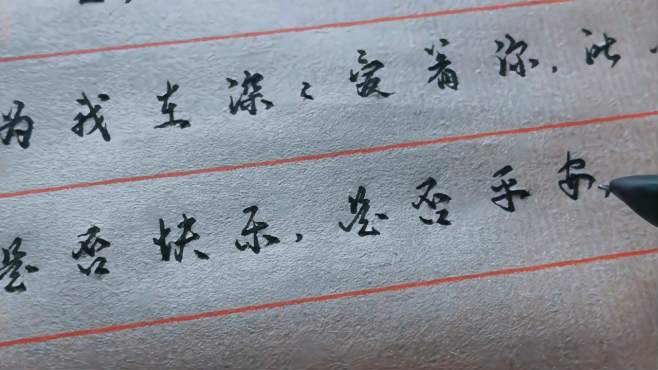 为我在深深爱着你,此
是否快乐,是否平安,